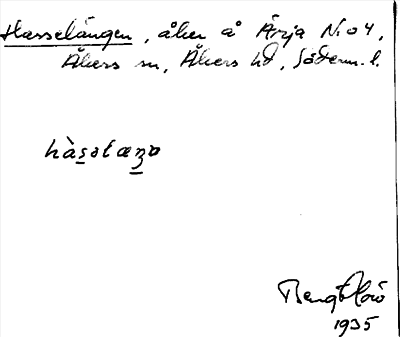 Hasselängen, åker å Ärja N:o 4,
Åkers sn, Åkers hd, Söderm. l.
hàsəlæŋa
Bengt
1935